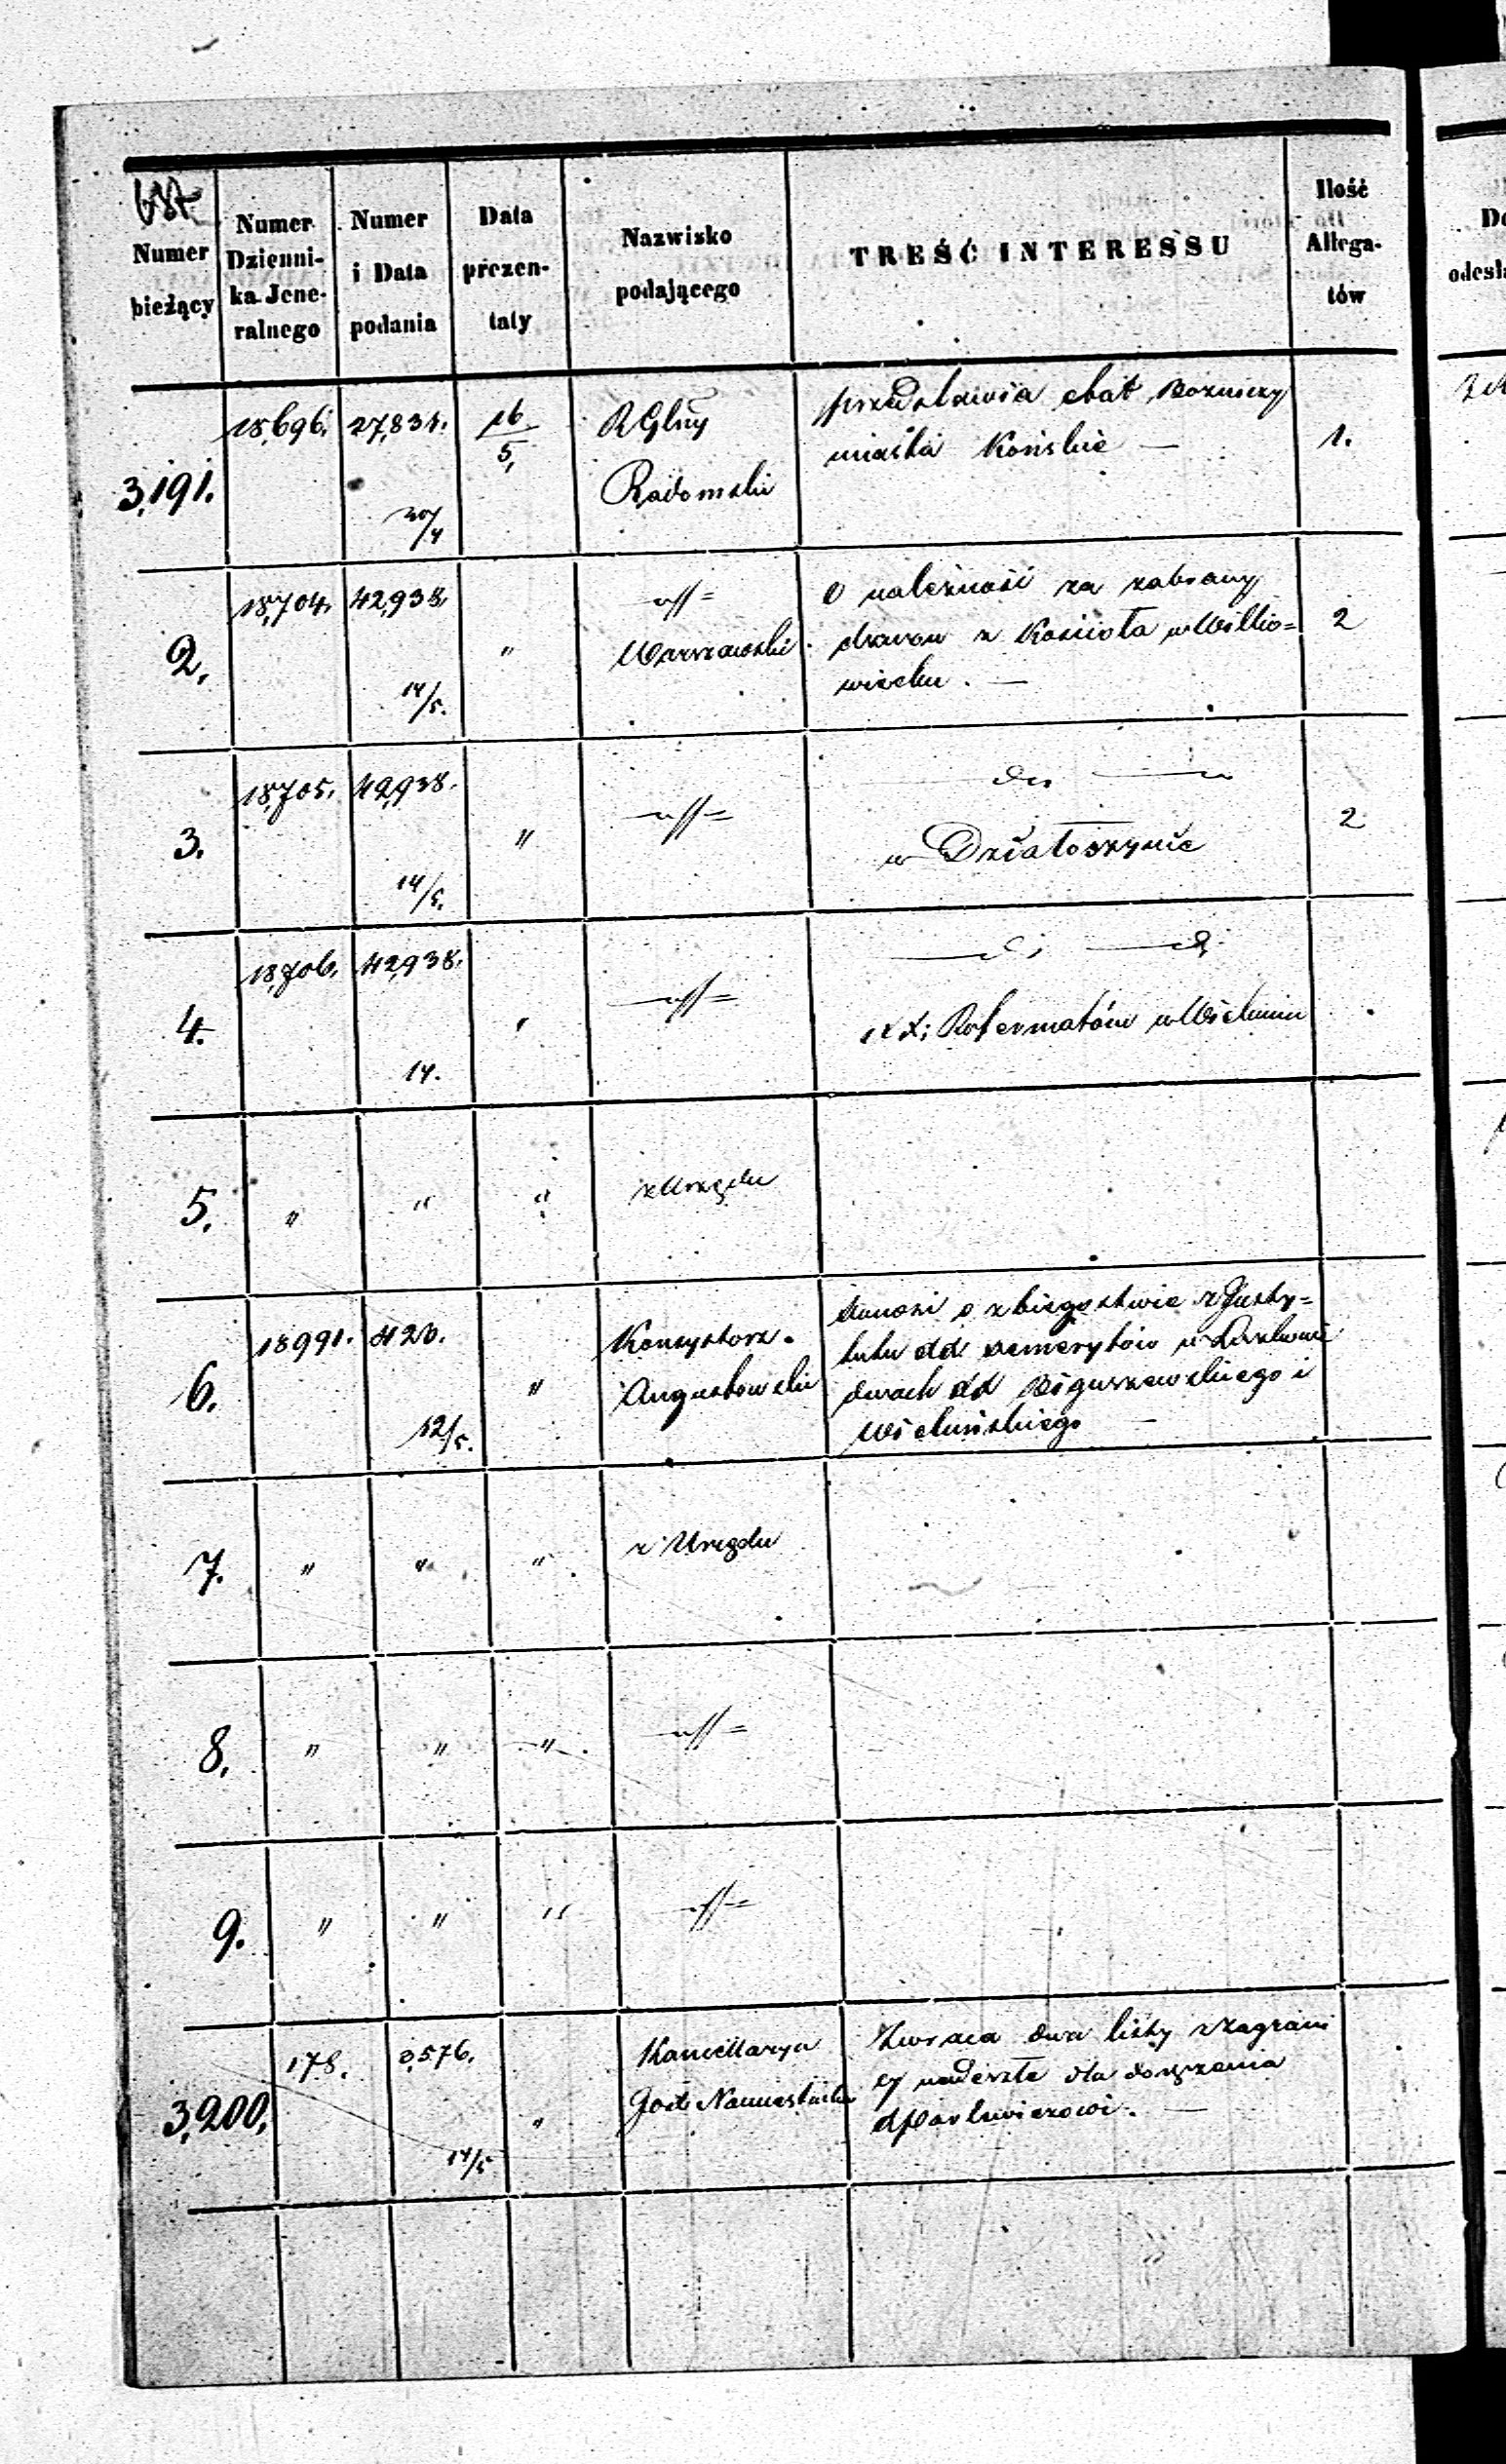 Numer
bieżący
Numer
Dzienni-
ka Jene-
ralnego
Numer
i Data
podania
Data
prezen-
taty
Nazwisko
podającego
TREŚĆ INTERESSU
Ilość
Allega-
tów
3,191.
18,696.
27,834.
30/4
16
5,
RGlny
Radomski
przedstawia etat Bożnicy
miasta Końskie —
1.
2.
18,704.
42,938.
14/5.
"
Warszawski
O należność za zabrany
dzwon z Kościoła w
2
3.
18,705.
42,938.
14/5.
"
w Działoszynie
2
4.
18,706.
42,938.
14.
"
Reformatów w Wieluniu
5.
"
"
"
z Urzędu
6.
18991.
426.
12/5.
"
Konsystorz
Augustowski
donosi o zbiegostwie z Insty=
tutu dd demerytów w
dwóch dd i
7.
"
"
"
z Urzędu
8.
"
"
"
9.
"
"
"
3,200.
178.
3,576.
14/5
"
Kancellarya
Namiestnika
Zwraca dwa listy z zagrani
cy dla doręczenia